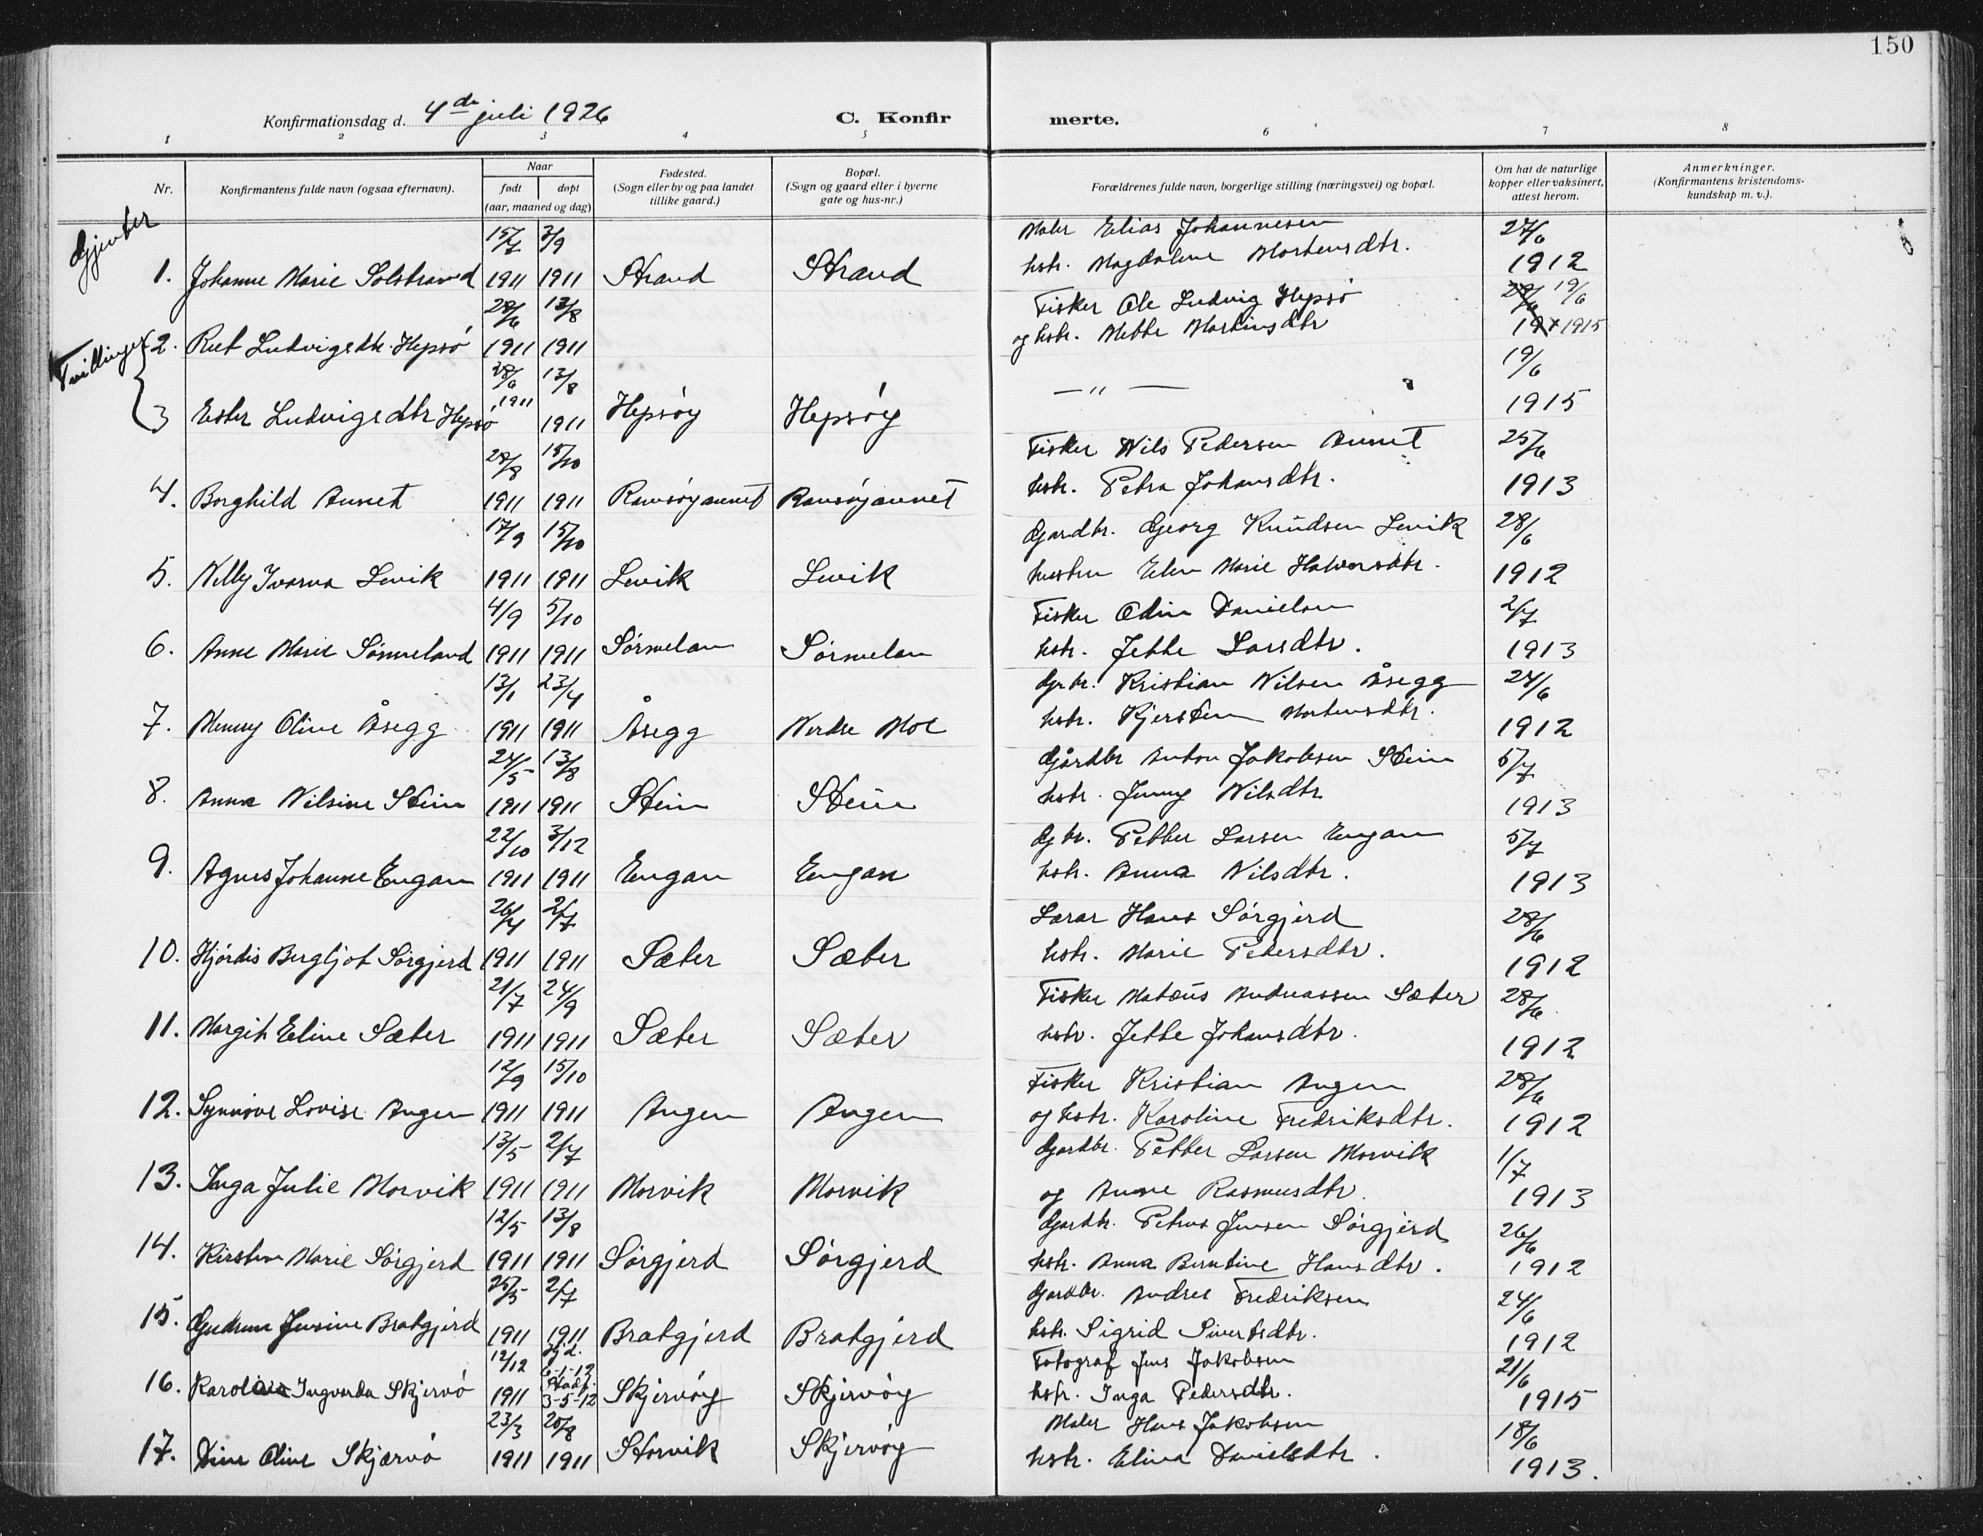 150
Konfirmationsdag d. 4de juli 1926 C. Konfirmerte.
1 2 3 4 5 6 7 8
Nr. Konfirmantens fulde navn (ogsaa efternavn). Naar født døpt (aar, maaned og dag) Fødested. (Sogn eller by og paa landet tillike gaard.) Bopæl. (Sogn og gaard eller i byerne gate og hus-nr.) Forældrenes fulde navn, borgerlige stilling (næringsvei) og bopæl. Om hat de naturlige kopper eller vaksinert, attest herom. Anmerkninger. (Konfirmantens kristendomskundskap m. v.).
Gjenter
15/7 3/9 Maler Elias Johannesen 27/6
1. Johanne Marie Solstrand 1911 1911 Strand Strand hstr. Magdalene Mortensdtr. 1912
28/6 13/8 Fisker Ole Ludvig Hepsø 19/6
Tvillinger 2. Rut Ludvigsdtr. Hepsø 1911 1911 og hstr. Mette Martinsdtr 1915
28/6 13/8 19/6
3 Ester Ludvigsdtr Hepsø 1911 1911 Hepsøy Hepsøy — " — 1915
28/8 15/10 Fisker Nils Pedersen Aunet 25/6
4. Borghild Aunet 1911 1911 Ramsøyaunet Ramsøyaunet hstr. Petra Johansdtr. 1913
17/9 15/10 Gardbr. Georg Knudsen Levik 28/6
5. Nelly Ivarna Levik 1911 1911 Levik Levik hustru Elen Marie Halvorsdtr. 1912
4/9 5/10 Fisker Odin Danielsen 2/7
6. Anne Marie Sørmeland 1911 1911 Sørmelan Sørmelan hstr. Jette Larsdtr. 1913
13/1 23/4 Gbr. Kristian Nilsen Åsegg 24/6
7. Menny Oline Åsegg 1911 1911 Åsegg Nerdre Moe hstr. Kjersten Mortensdtr. 1912
24/5 13/8 Gårdbr Anton Jakobsen Stein 5/7
8. Anna Nilsine Stein 1911 1911 Stein Stein hstr. Jenny Nilsdtr 1913
22/10 3/12 Gbr. Petter Larsen Engan 5/7
9. Agnes Johanne Engan 1911 1911 Engan Engan hstr. Anna Nilsdtr. 1913
26/4 2/7 Lærar Hans Sørgjerd 28/6
10. Hjørdis Bergljot Sørgjerd 1911 1911 Sæter Sæter hstr. Marie Petersdtr. 1912
21/7 24/9 Fisker Mateus Andreassen Sæter 28/6
11. Margit Eline Sæter 1911 1911 Sæter Sæter hstr. Jette Johansdtr. 1912
12/9 15/10 Fisker Kristian Angen 28/6
12. Synnøve Lovise Angen 1911 1911 Angen Angen og hstr. Karoline Fredriksdtr. 1912
13/5 2/7 Gardbr. Petter Larsen Morvik 1/7
13. Inga Julie Morvik 1911 1911 Morvik Morvik og Anne Rasmusdtr. 1913
12/5 13/8 Gardbr. Petrus Jensen Sørgjerd 26/6
14. Kirsten Marie Sørgjerd 1911 1911 Sørgjerd Sørgjerd hstr. Anna Berntine Hansdtr. 1912
25/5 2/7 Gardbr. Andres Fredriksen 24/6
15. Gudrun Jensine Bratgjerd 1911 1911 Bratgjerd Bratgjerd hstr. Sigrid Sivertsdtr. 1912
12/12 Hj.d. 6-1-12 Fotograf Jens Jakobsen 21/6
16. Ingvarda Skjervø 1911 Stadf. 3-5-12 Skjervøy Skjervøy hstr. Inga Pedersdtr. 1915
23/3 20/8 Maler Hans Jakobsen 18/6
17. Dine Oline Skjærvø 1911 1911 Storvik Skjervøy hstr. Elina Danielsdtr. 1913.